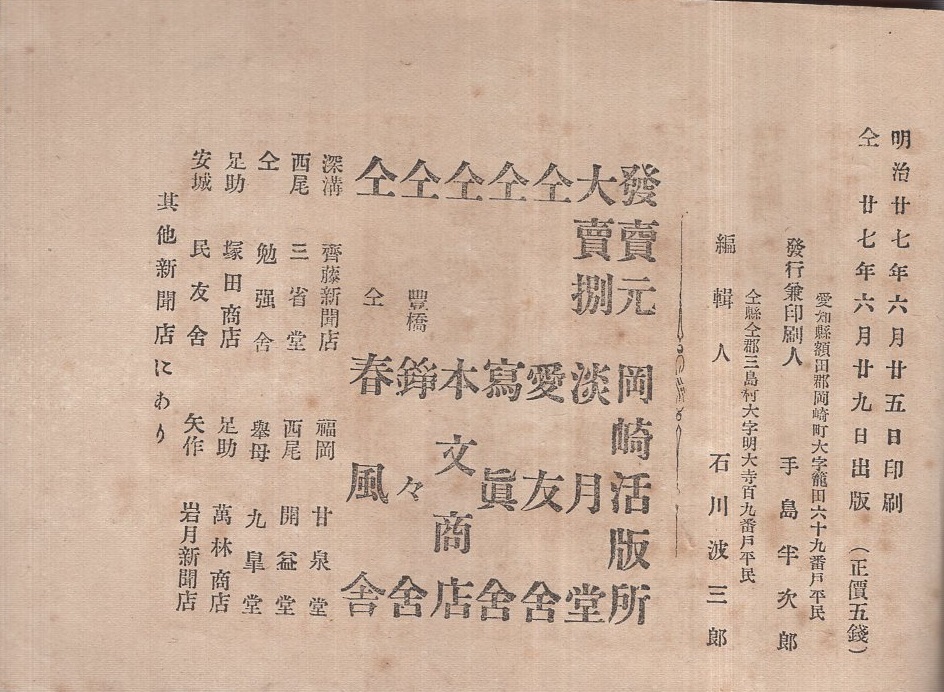 明治廿七年六月廿五日印刷
仝　廿七年六月廿九日出版　（正價五錢）
愛知縣額田郡岡崎町大字籠田六十九番戸平民
發行兼印刷人　手島半次郎
仝縣仝郡三島村大字明大寺百九番戸平民
編輯人　石川波三郎
發賣元　岡崎活版所
大賣捌　淡月堂
仝　愛友舍
仝　寫眞舍
仝　本文商店
仝　豐橋　錚々舍
仝　仝　春風舍
深溝　齊藤新聞店　福岡　甘泉堂
西尾　三省堂　西尾　開益堂
仝　勉强舍　擧母　九皐堂
足助　塚田商店　足助　萬林商店
安城　民友舍　矢作　岩月新聞店
其他新聞店にあり